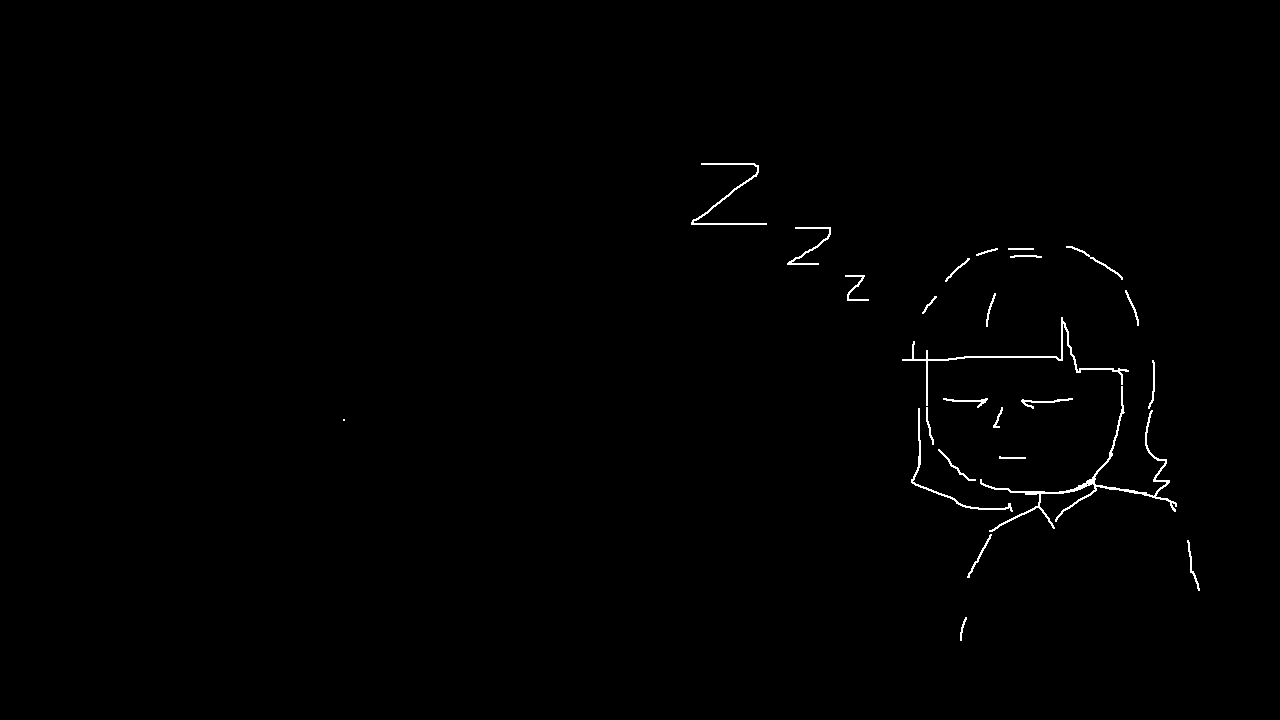 Z z z